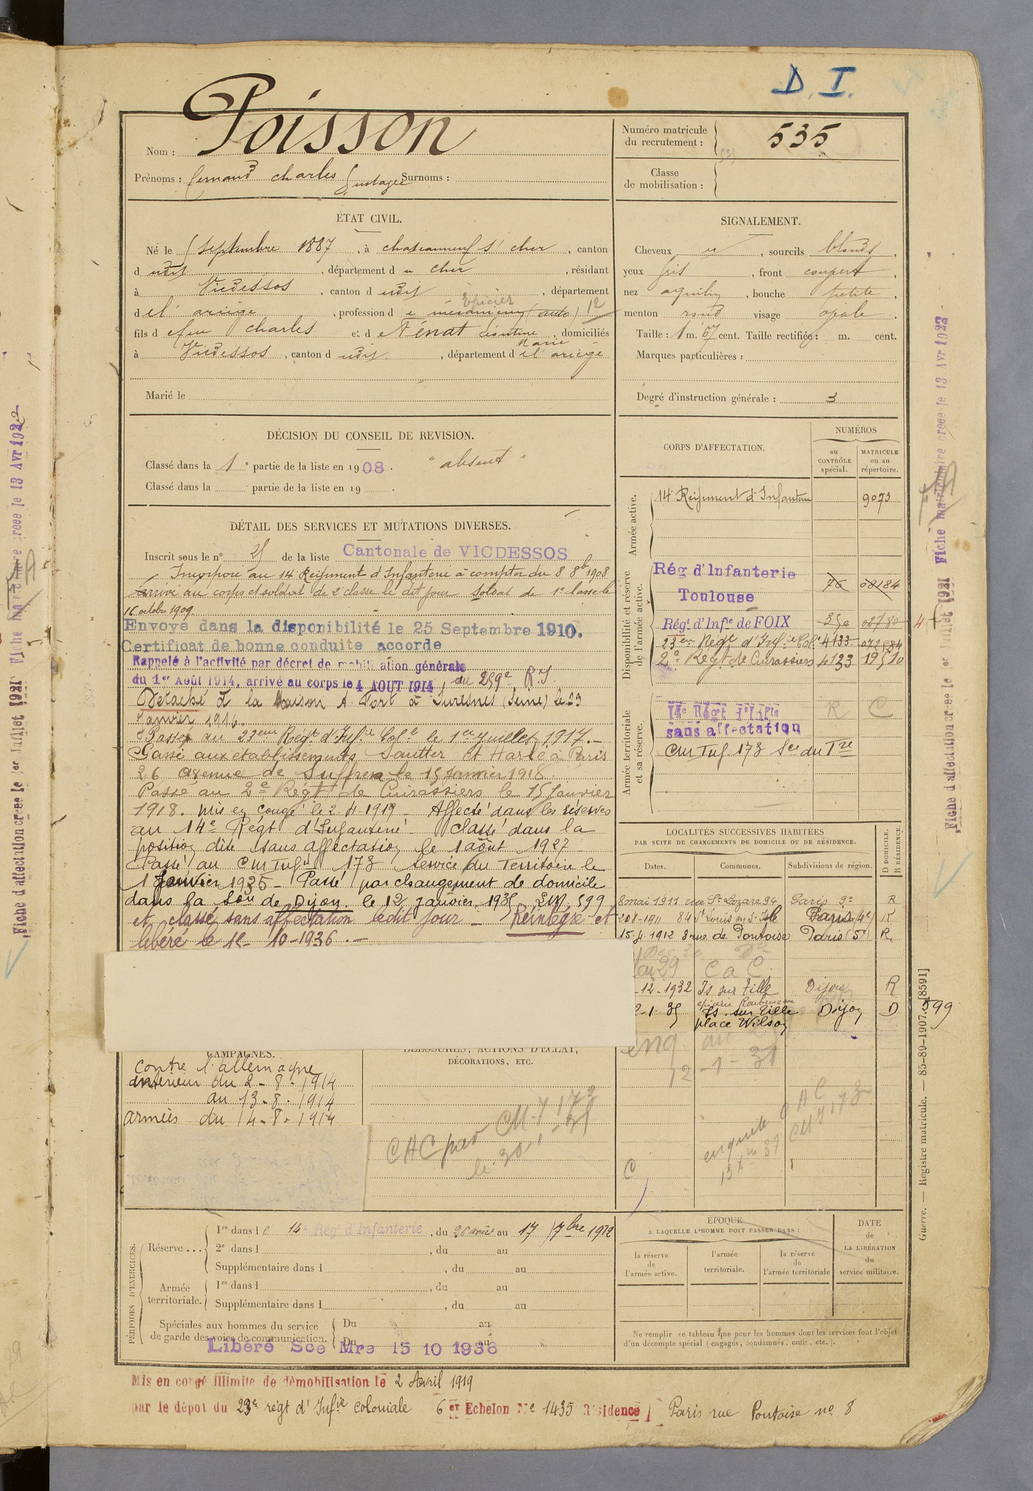 D. I.
Nom : Poisson
Prénoms : fernand charles Gustave Surnoms :
Numéro matricule du recrutement : 535
Classe de mobilisation :
ÉTAT CIVIL.
Né le 1 Septembre 1887, à chateauneuf s/ cher, canton
d udit, département d u cher, résidant
à Vicdessos, canton d udit, département
d e l' ariège, profession d e mécanicien (auto) épicier 12
fils d e feu charles et d e Renat Marie, domiciliés
à Vicdessos, canton d udit, département d e l'ariège
Marié le
SIGNALEMENT.
Cheveux , sourcils blonds,
yeux gris, front couvert,
nez aquilin, bouche petite,
menton rond visage ovale.
Taille : 1 m. 67 cent. Taille rectifiée : m. cent.
Marques particulières :
Degré d'instruction générale : 3
DÉCISION DU CONSEIL DE REVISION.
Classé dans la 1e partie de la liste en 1908. "absent"
Classé dans la partie de la liste en 19 .
DÉTAIL DES SERVICES ET MUTATIONS DIVERSES.
Inscrit sous le n° de la liste Cantonale de VICDESSOS
Incorporé au 14 Régiment d'Infanterie à compter du 8 8bre 1908
Arrivé au corps et soldat de 2e classe le dit jour Soldat de 1e classe le
16 octobre 1909.
Envoyé dans la disponibilité le 25 Septembre 1910.
Certificat de bonne conduite accordé
Rappelé à l'activité par décret de mobilisation générale
du 1er Août 1914, arrivé au corps le 4 AOUT 1914, du 259e R.I.
Détaché à la Maison A. Fort à Suresnes (Seine) le 23
Janvier 1916.
Passé au 23eme Regt d'Infie Colle le 1er juillet 1917.-
Classé aux etablissements Sautter et Harlé à Paris
26 avenue de Suffren le 15 Janvier 1918.
Passé au 2e Regt de Cuirassiers le 15 Janvier
1918. Mis en congé le 2 4 1919 Affecté dans les réserves
au 14e Régt d'Infanterie. Classé dans la
position dite sans affectation le 1 août 1927
Passé au CM Infie 173 Service du Territoire le
1 Janvier 1935 - Passé par changement de domicile
dans la Son de Dijon. le 12 janvier 1935 LM 599
et classé sans affectation le dit jour - Réintégré et
libéré le 15 - 10 - 1936. -
CORPS D'AFFECTATION.
NUMÉROS
au CONTRÔLE spécial.
MATRICULE ou au répertoire.
Armée active.
14 Régiment d'Infanterie 9073
Disponibilité et réserve de l'armée active.
Rég d'Infanterie Toulouse 08184
Régt d'Infie de FOIX
23eme Regt d'Infie Cole 4133
2e Régt de Cuirassiers 4133
Armée territoriale et sa réserve.
14e Régt d'Infie R C
sans affectation
CM Inf. 173 Sce du Tre
LOCALITÉS SUCCESSIVES HABITÉES
PAR SUITE DE CHANGEMENTS DE DOMICILE OU DE RÉSIDENCE.
Dates. Communes. Subdivisions de région. D DOMICILE. R RÉSIDENCE.
8 mai 1911 rue St Lazare 94 Paris R
Paris 4e R
15-4-1912 8 rue de Pontoise Paris (5e) R.
C a C
-12-1932 Is sur Tille Dijon R
2-1-35 Is sur Tille Dijon D 599
place Wilson
12-1-31
CAMPAGNES.
Contre l'allemagne
intérieur du 2-8-1914
au 13-8-1914
armées du 14-8-1914
BLESSURES, ACTIONS D'ÉCLAT,
DÉCORATIONS, ETC.
CAC par CM I 173
enquête CAC
CM I 173
C
PÉRIODES D'EXERCICES.
Réserve... 1re dans le 14e Rég d'Infanterie, du 26 août au 17 7bre 1912
2e dans l , du au
Supplémentaire dans l , du au
Armée territoriale. 1re dans l , du au
Supplémentaire dans l , du au
Spéciales aux hommes du service de garde des voies de communication. Du au
Du au
Libéré Sce Mre 15 10 1936
ÉPOQUE
À LAQUELLE L'HOMME DOIT PASSER DANS :
la réserve de l'armée active.
l'armée territoriale.
la réserve de l'armée territoriale
DATE de LA LIBÉRATION du service militaire.
Ne remplir ce tableau que pour les hommes dont les services font l'objet
d'un décompte spécial (engagés, condamnés, omis, etc.).
Mis en congé illimité de démobilisation le 2 Avril 1919
par le dépôt du 23e régt d'Infie coloniale 6e Echelon No 1435 Résidence Paris rue Pontoise no 8
Guerre. — Registre matricule. — 85-89-1907. [8591]
Fiche d'affectation créée le 1er Juillet 1921 Fiche matriculaire créée le 13 Avr 1922
Fiche d'affectation créée le 1er Juillet 1921 Fiche matriculaire créée le 13 Avr 1922